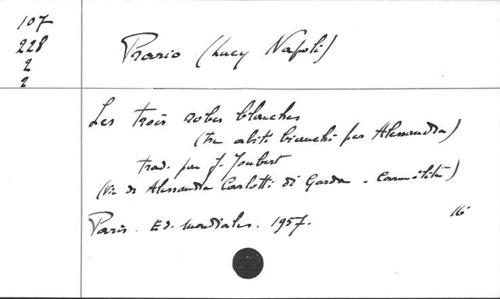 107
228
2
2
Prario (Lucy Napoli)
Les trois robes blanches
(tre abiti bianchi per Alessandra)
trad. par J. Joubert
(Vie di Alessandra Carlotti di Garda - Carmélite)
Paris. Ed. mondiales. 1957.
16